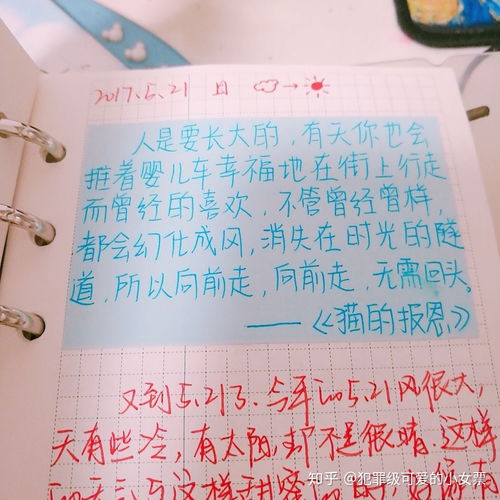 2017.5.21 日 →
人是要长大的，有天你也会
推着婴儿车幸福地在街上行走
而曾经的喜欢，不管曾经曾样，
都会幻化成风，消失在时光的隧
道，所以向前走，向前走，无需回头。
——《猫的报恩》
又到5.21了，今年的5.21风很大，
天有些冷，有太阳，却不是很晴。这样
的天气与这样甜蜜的
知乎 @犯罪级可爱的小女票